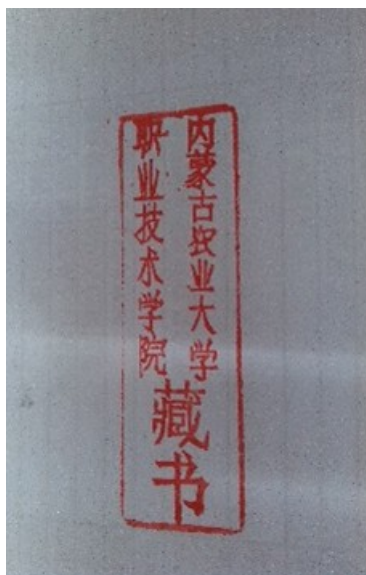 内蒙古农业大学
职业技术学院
藏书